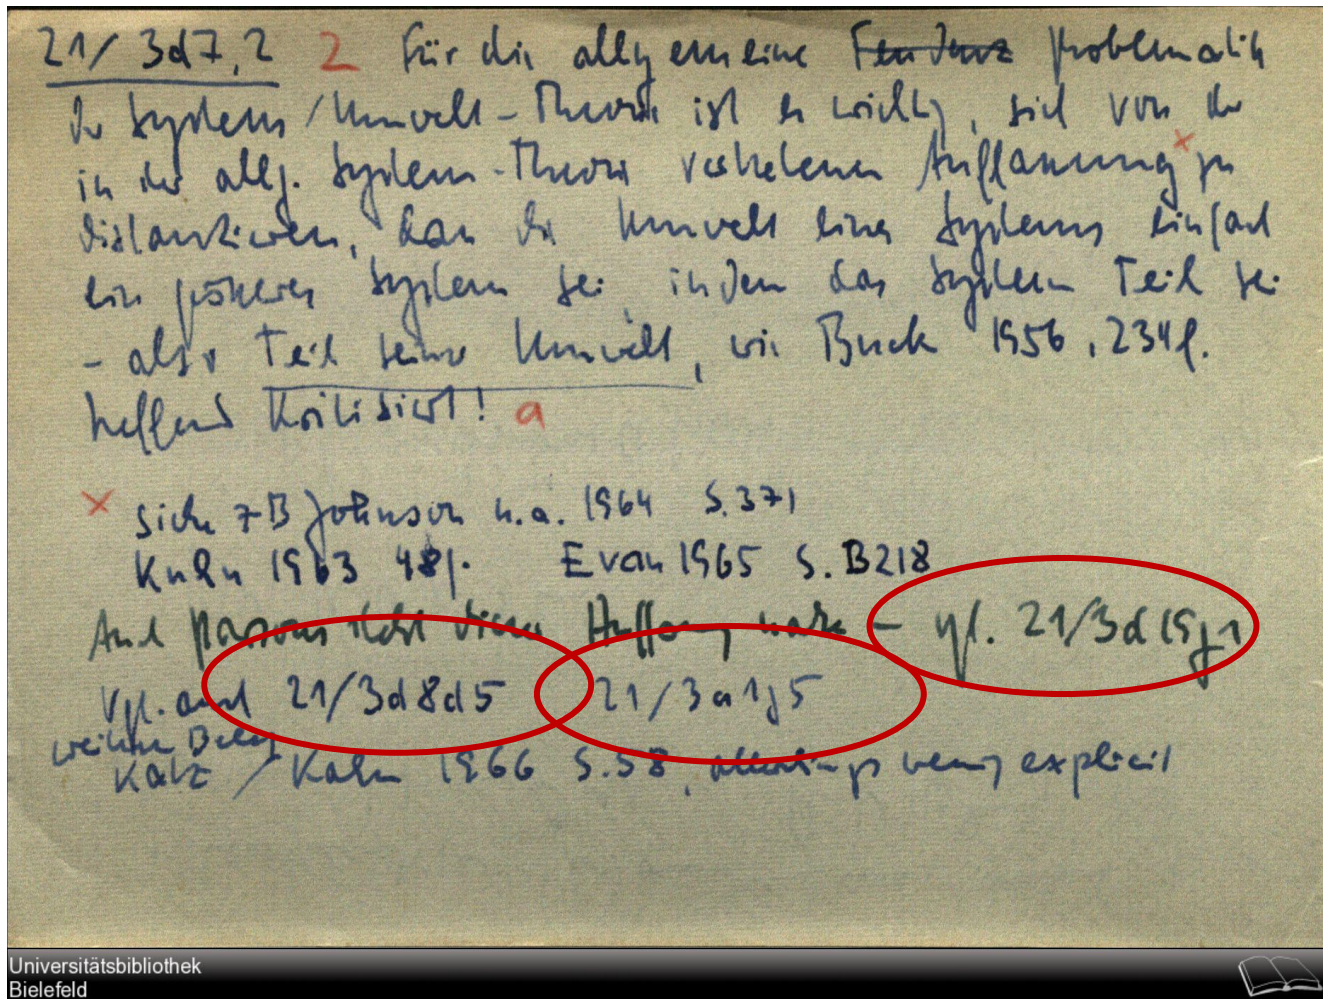 21/3d7,2 2 Für die allgemeine Tendenz Problematik
der System/Umwelt-Theorie ist es wichtig, sich von der
in der allg. System-Theorie vertretenen Auffassung x zu
distanzieren, dass die Umwelt eines Systems einfach
ein grösseres System sei, in dem das System Teil sei
- also Teil seiner Umwelt, wie Buck 1956, 234f.
treffend kritisiert! a
x Siehe z B Johnson u.a. 1964 S. 371
Kuhn 1963 48f. Evan 1965 S. B218
Auch Parsons steht dieser Auffassung nahe - vgl. 21/3d19g1
Vgl. auch 21/3d8d5 21/3a1j5
weiterer Beleg
Katz / Kahn 1966 S. 58, allerdings wenig explicit
Universitätsbibliothek
Bielefeld